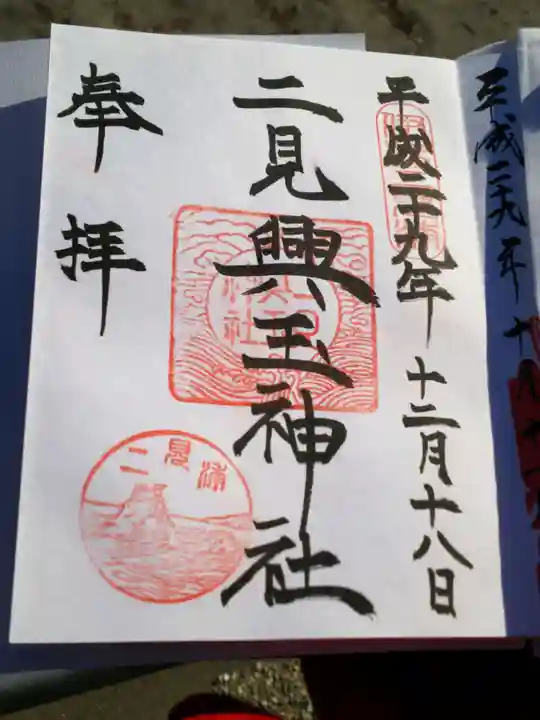 平成二十九年 十二月十八日
二見興玉神社
奉拝
二見浦
平成二十九年十月